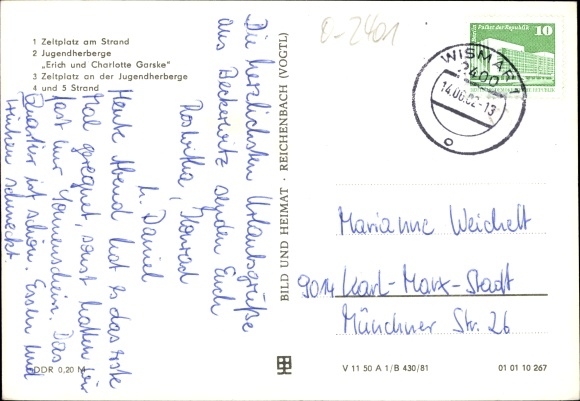 1 Zeltplatz am Strand
2 Jugendherberge
„Erich und Charlotte Garske"
3 Zeltplatz an der Jugendherberge
4 und 5 Strand
Die herzlichsten Urlaubsgrüße
aus Beckerwitz senden Euch
Roswitha, Konrad
u. Daniel
Heute Abend hat es das erste
Mal geregnet, sonst hatten wir
fast nur Sonnenschein. Das
Quartier ist schön. Essen und
Trinken schmeckt.
DDR 0,20 M
BILD UND HEIMAT · REICHENBACH (VOGTL)
0-2401
Palast der Republik
10
WISMAR 1
2400
14.06.82-13
Marianne Weichelt
9014 Karl-Marx-Stadt
Münchner Str. 26
V 11 50 A 1/B 430/81
01 01 10 267